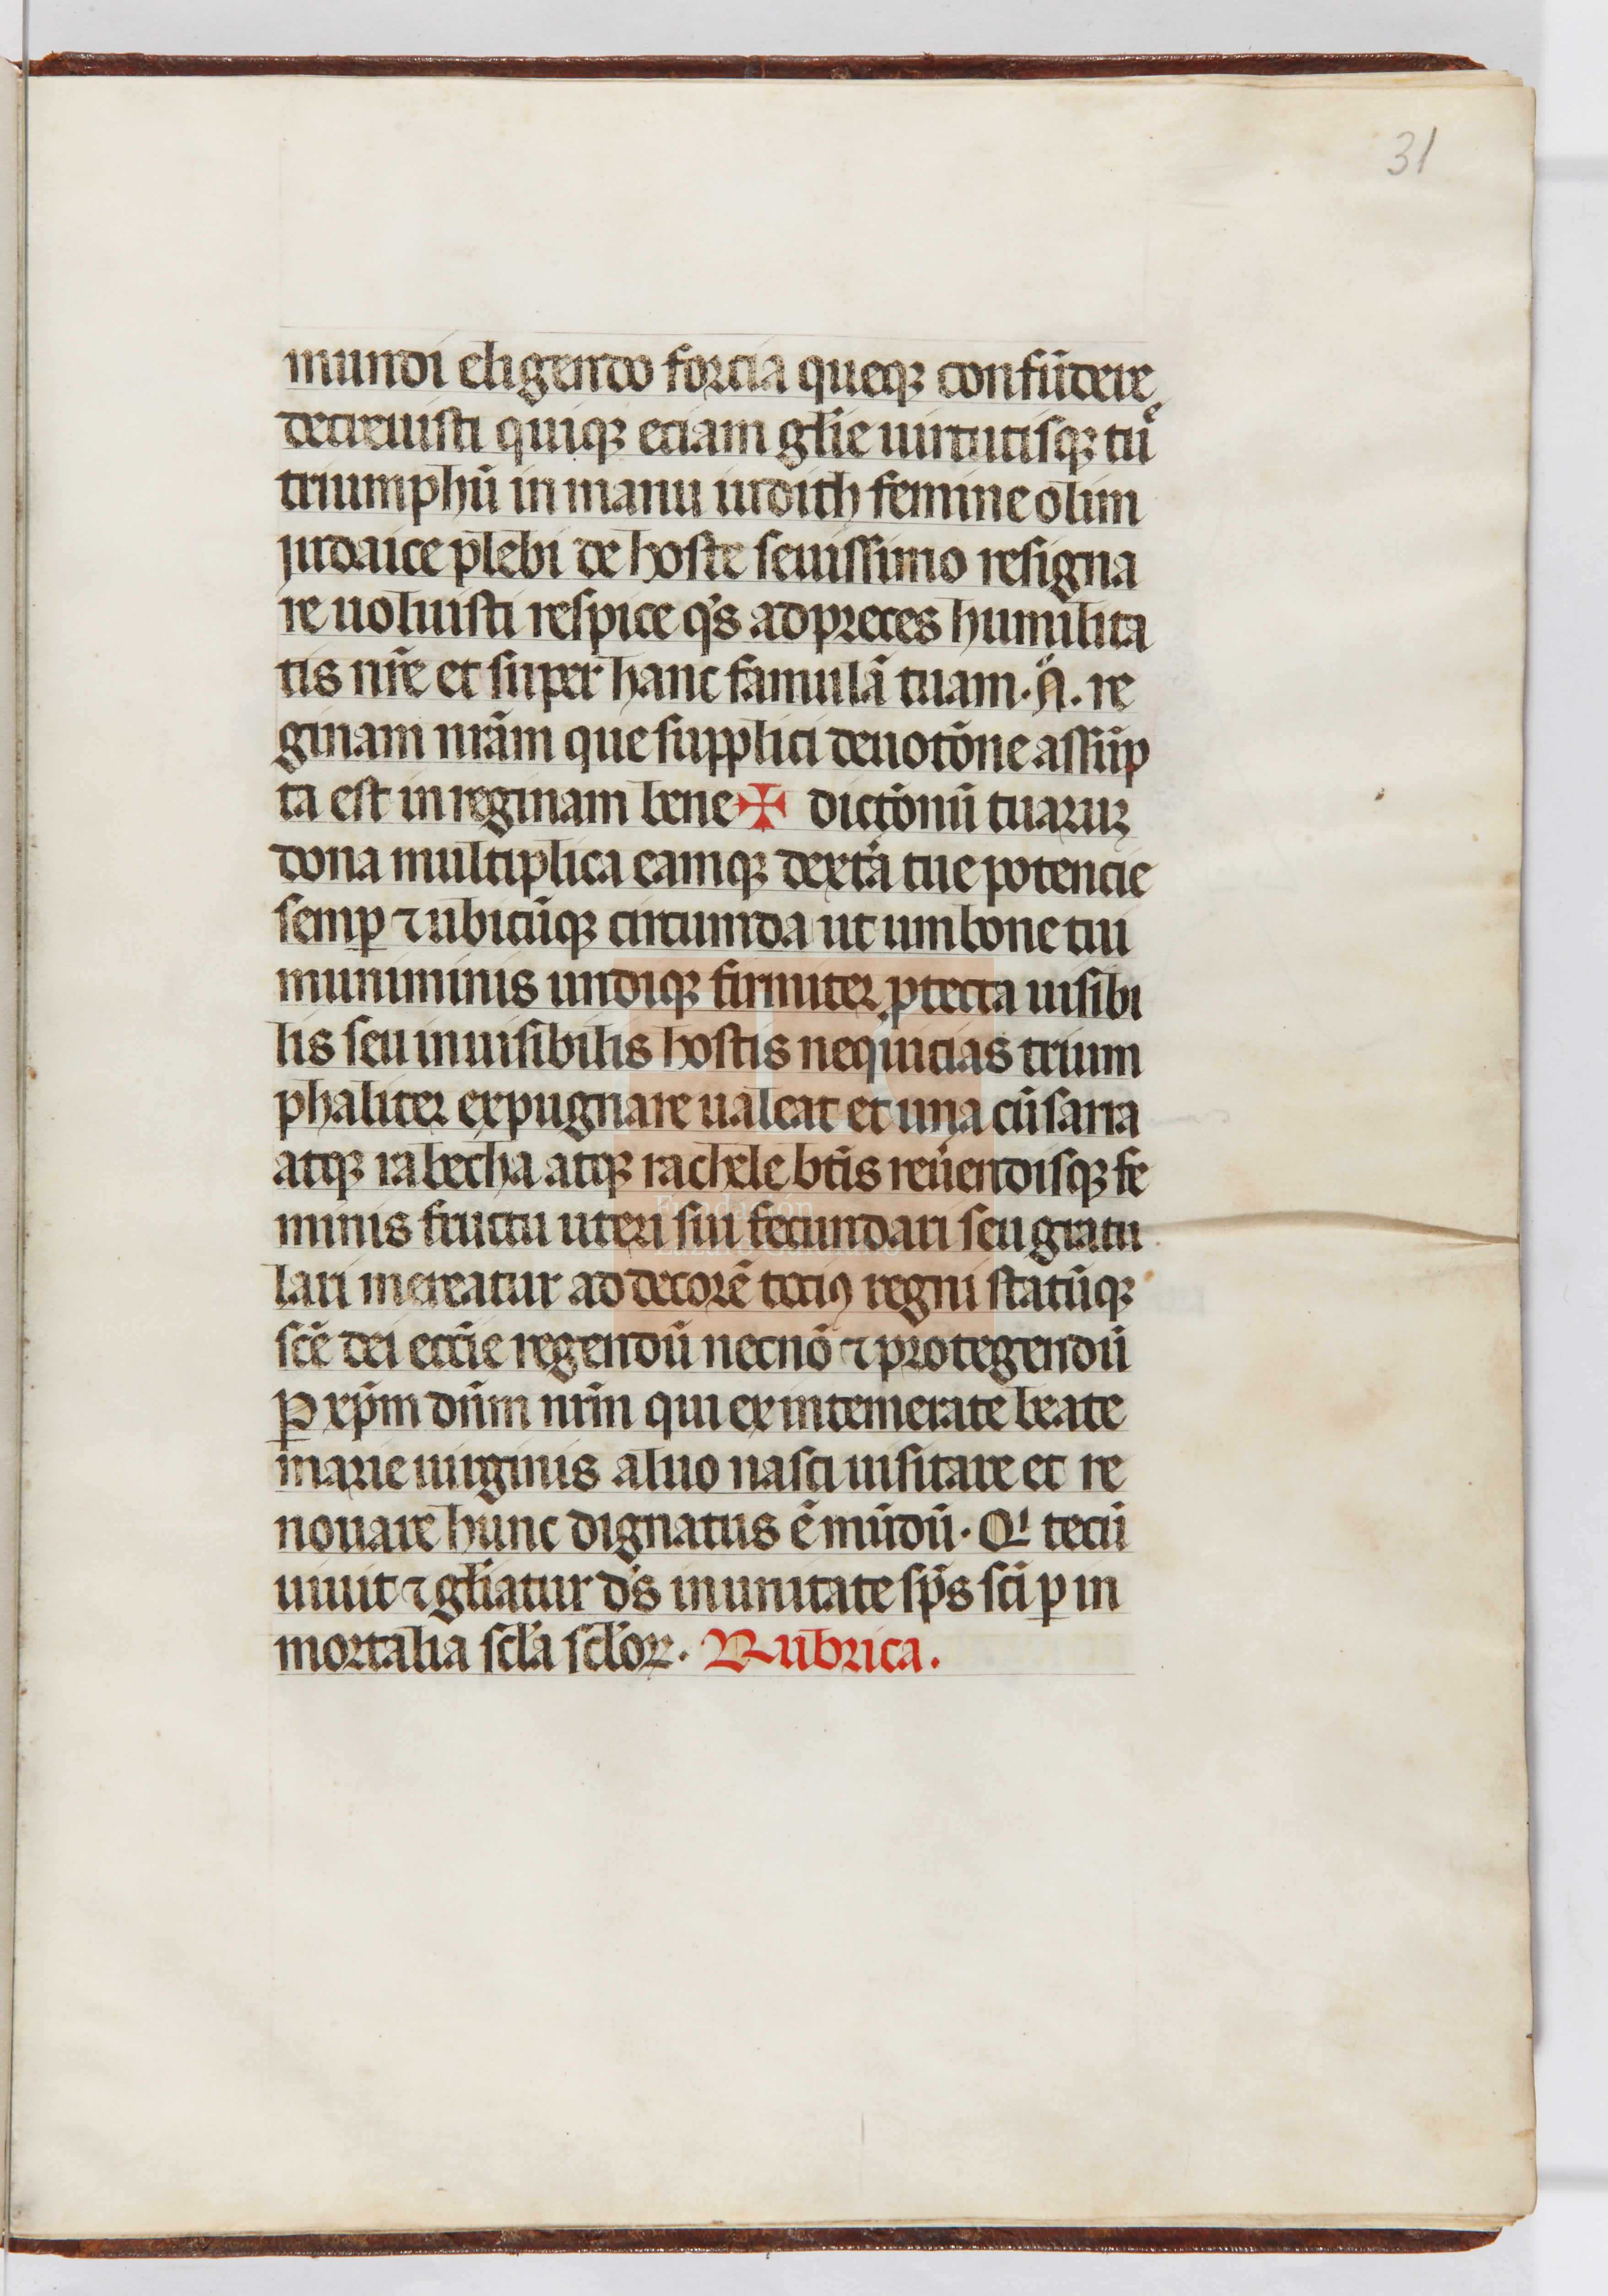 31
mundi eligendo forcia queqꝫ confūdere
decreuisti quiqꝫ eciam gl̄ie uirtutisqꝫ tuͤ
triumphū in manu iudith femine olim
judaice plebi de hoste seuissimo resigna
re uoluisti respice q̄s ad preces humilita
tis nr̄e et super hanc famulā tuam. N̈. re
ginam nr̄am que supplici deuotōne assūp
ta est in reginam bene✠ dictōnū tuaruꝝ
dona multiplica eamqꝫ dext̾a tue potencie
semꝑ ⁊ ubicūqꝫ circumda ut umbone tui
muniminis undiqꝫ firmiter ꝓtecta uisibi
lis seu inuisibilis hostis nequicias trium
phaliter expugnare ualeat et una cū sarra
atqꝫ rabecha atqꝫ rachele bt̄is reu̾endisqꝫ fe
minis fructu uteri sui fecundari seu gratu
Fundación
Lázaro Galdiano
lari mereatur ad decorē tociꝰ regni statūqꝫ
scē dei ecc̄ie regendū necnō ⁊ protegendū
ꝑ xp̄m dn̄m nr̄m qui ex intemerate beate
marie uirginis aluo nasci uisitare et re
nouare hunc dignatus ē mūdū. Qͥ tecū
uiuit ⁊ gl̄iatur d̄s in unitate sp̄s sc̄i ꝑ in
mortalia scl̄a scl̄oꝝ. Rubrica.